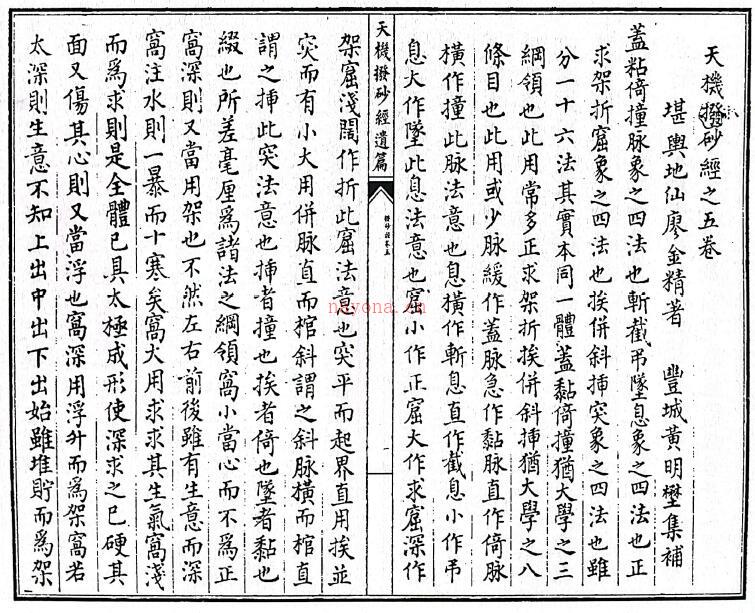 天機撥砂經之五卷
堪輿地仙廖金精著 豐城黃明懋集補
蓋粘倚撞脉象之四法也斬截吊墜息象之四法也正
求架折窟象之四法也挨併斜揷突象之四法也雖
分一十六法其實本同一體蓋黏倚撞猶大學之三
綱領也此用常多正求架折挨併斜揷猶大學之八
條目也此用或少脉緩作蓋脉急作黏脉直作倚脉
橫作撞此脉法意也息橫作斬息直作截息小作吊
息大作墜此息法意也窟小作正窟大作求窟深作
天機撥砂經遺篇
撥砂經卷五
架窟淺闊作折此窟法意也突平而起界直用挨並
突而有小大用併脉直而棺斜謂之斜脉橫而棺直
謂之揷此突法意也揷者撞也挨者倚也墜者黏也
綴也所差毫厘爲諸法之綱領窩小當心而不爲正
窩深則又當用架也不然左右前後雖有生意而深
窩注水則一暴而十寒矣窩大用求求其生氣窩淺
而爲求則是全體已具太極成形使深求之已硬其
面又傷其心則又當浮也窩深用浮升而爲架窩若
太深則生意不知上出中出下出始雖堆貯而爲架
nayona.cn